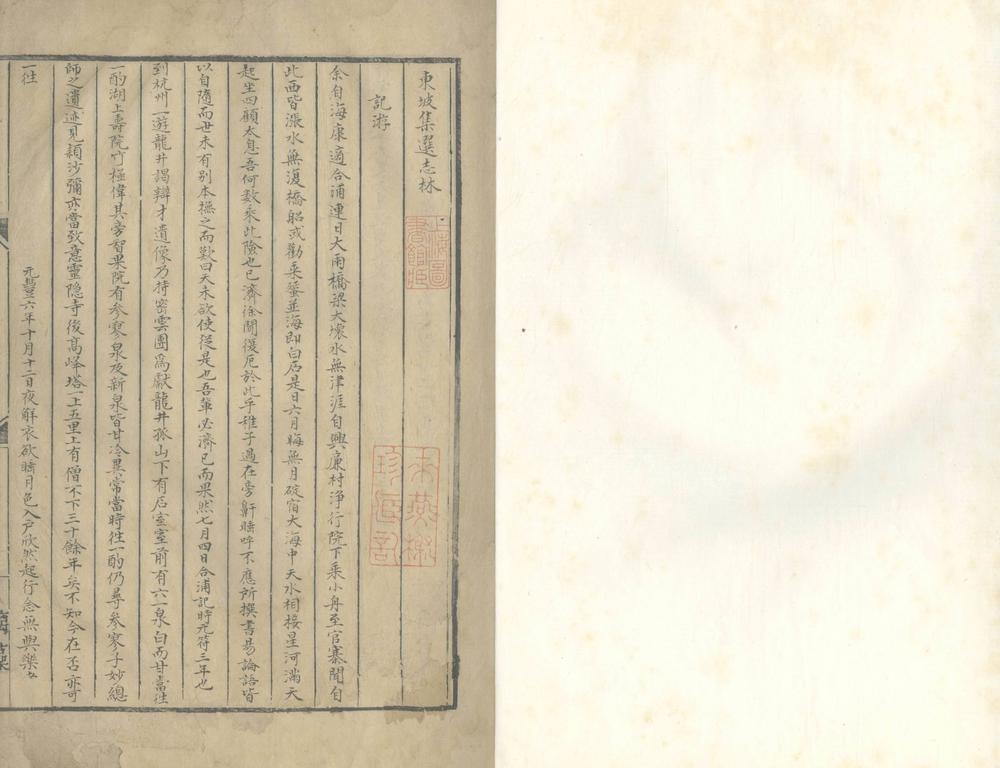 東坡集選志林
記游
余自海康適合浦連日大雨橋梁大壞水無津涯自興廉村淨行院下乘小舟至官寨聞自
此西皆漲水無復橋船或勸乘蜑並海即白石是日六月晦無月碇宿大海中天水相接星河滿天
起坐四顧太息吾何數乘此險也已濟徐聞復厄於此乎稚子過在旁鼾睡呼不應所撰書易論語皆
以自隨而世未有别本撫之而歎曰天未欲使從是也吾輩必濟已而果然七月四日合浦記時元符三年也
到杭州一遊龍井謁辯才遺像乃持密雲團為獻龍井孤山下有石室室前有六一泉白而甘當往
一酌湖上壽院竹極偉其旁智果院有參寥泉及新泉皆甘冷異常當時往一酌仍尋參寥子妙總
師之遺迹見穎沙彌亦當致意靈隱寺後高峰塔一上五里上有僧不下三十餘年矣不知今在否亦可
一往
元豐六年十月十二日夜解衣欲睡月色入户欣然起行念無與樂
上海圖書館藏
朱燕珍臧記